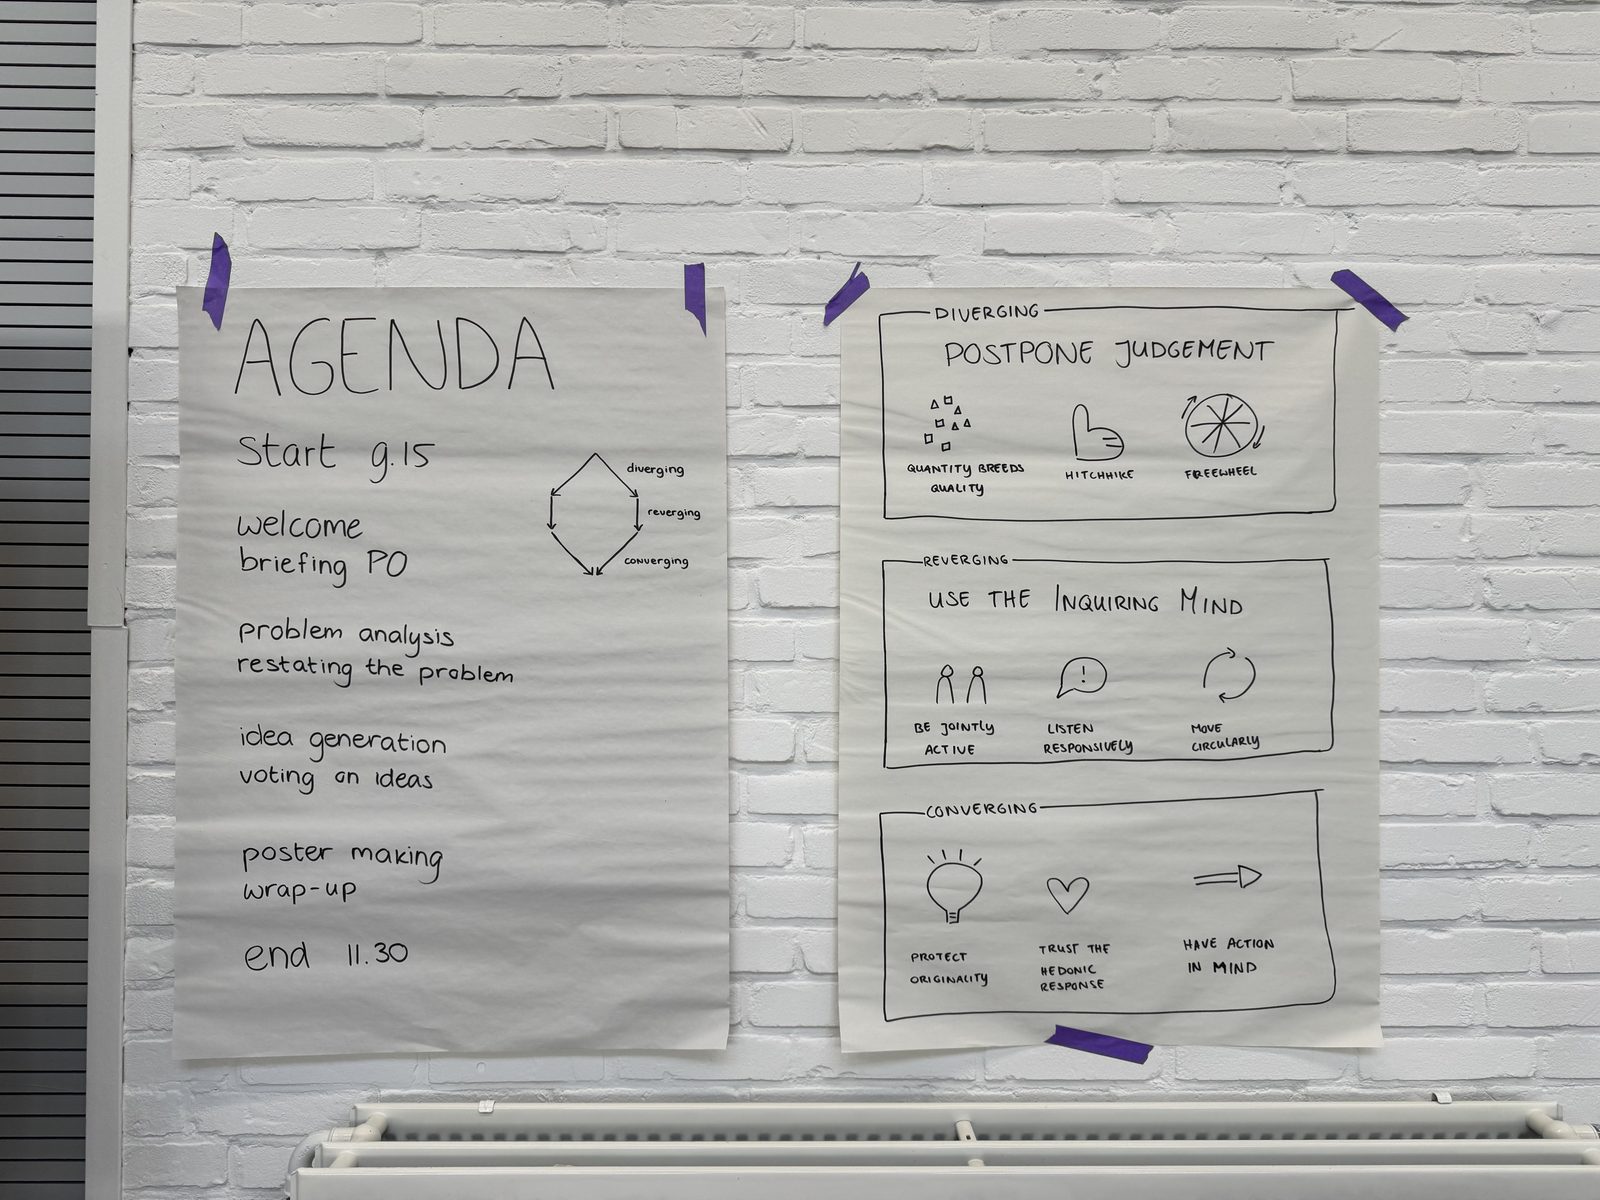 AGENDA
Start 9.15
welcome
briefing PO
problem analysis
restating the problem
idea generation
voting on ideas
poster making
wrap-up
end 11.30
diverging
reverging
converging
DIVERGING
POSTPONE JUDGEMENT
QUANTITY BREEDS
QUALITY
HITCHHIKE
FREEWHEEL
REVERGING
USE THE INQUIRING MIND
BE JOINTLY
ACTIVE
LISTEN
RESPONSIVELY
!
MOVE
CIRCULARLY
CONVERGING
PROTECT
ORIGINALITY
TRUST THE
HEDONIC
RESPONSE
HAVE ACTION
IN MIND